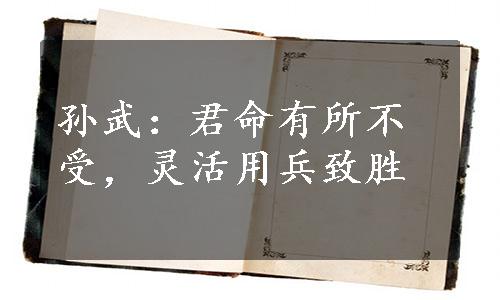 孙武：君命有所不
受，灵活用兵致胜